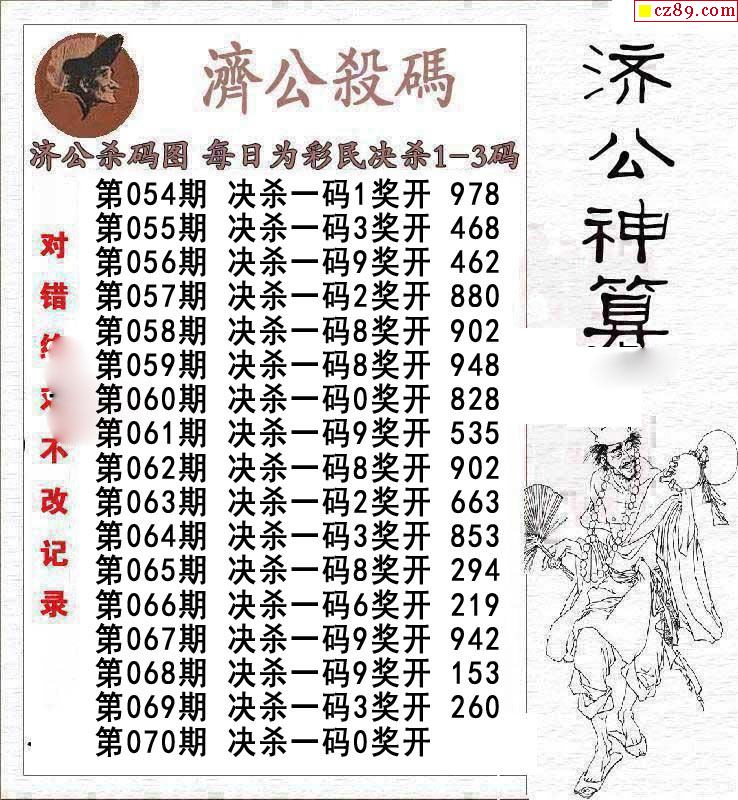 cz89.com
濟公殺碼
济公杀码图 每日为彩民决杀1-3码
第054期 决杀一码1奖开 978
第055期 决杀一码3奖开 468
第056期 决杀一码9奖开 462
第057期 决杀一码2奖开 880
第058期 决杀一码8奖开 902
第059期 决杀一码8奖开 948
第060期 决杀一码0奖开 828
第061期 决杀一码9奖开 535
第062期 决杀一码8奖开 902
第063期 决杀一码2奖开 663
第064期 决杀一码3奖开 853
第065期 决杀一码8奖开 294
第066期 决杀一码6奖开 219
第067期 决杀一码9奖开 942
第068期 决杀一码9奖开 153
第069期 决杀一码3奖开 260
第070期 决杀一码0奖开
对错不改记录
济公神算